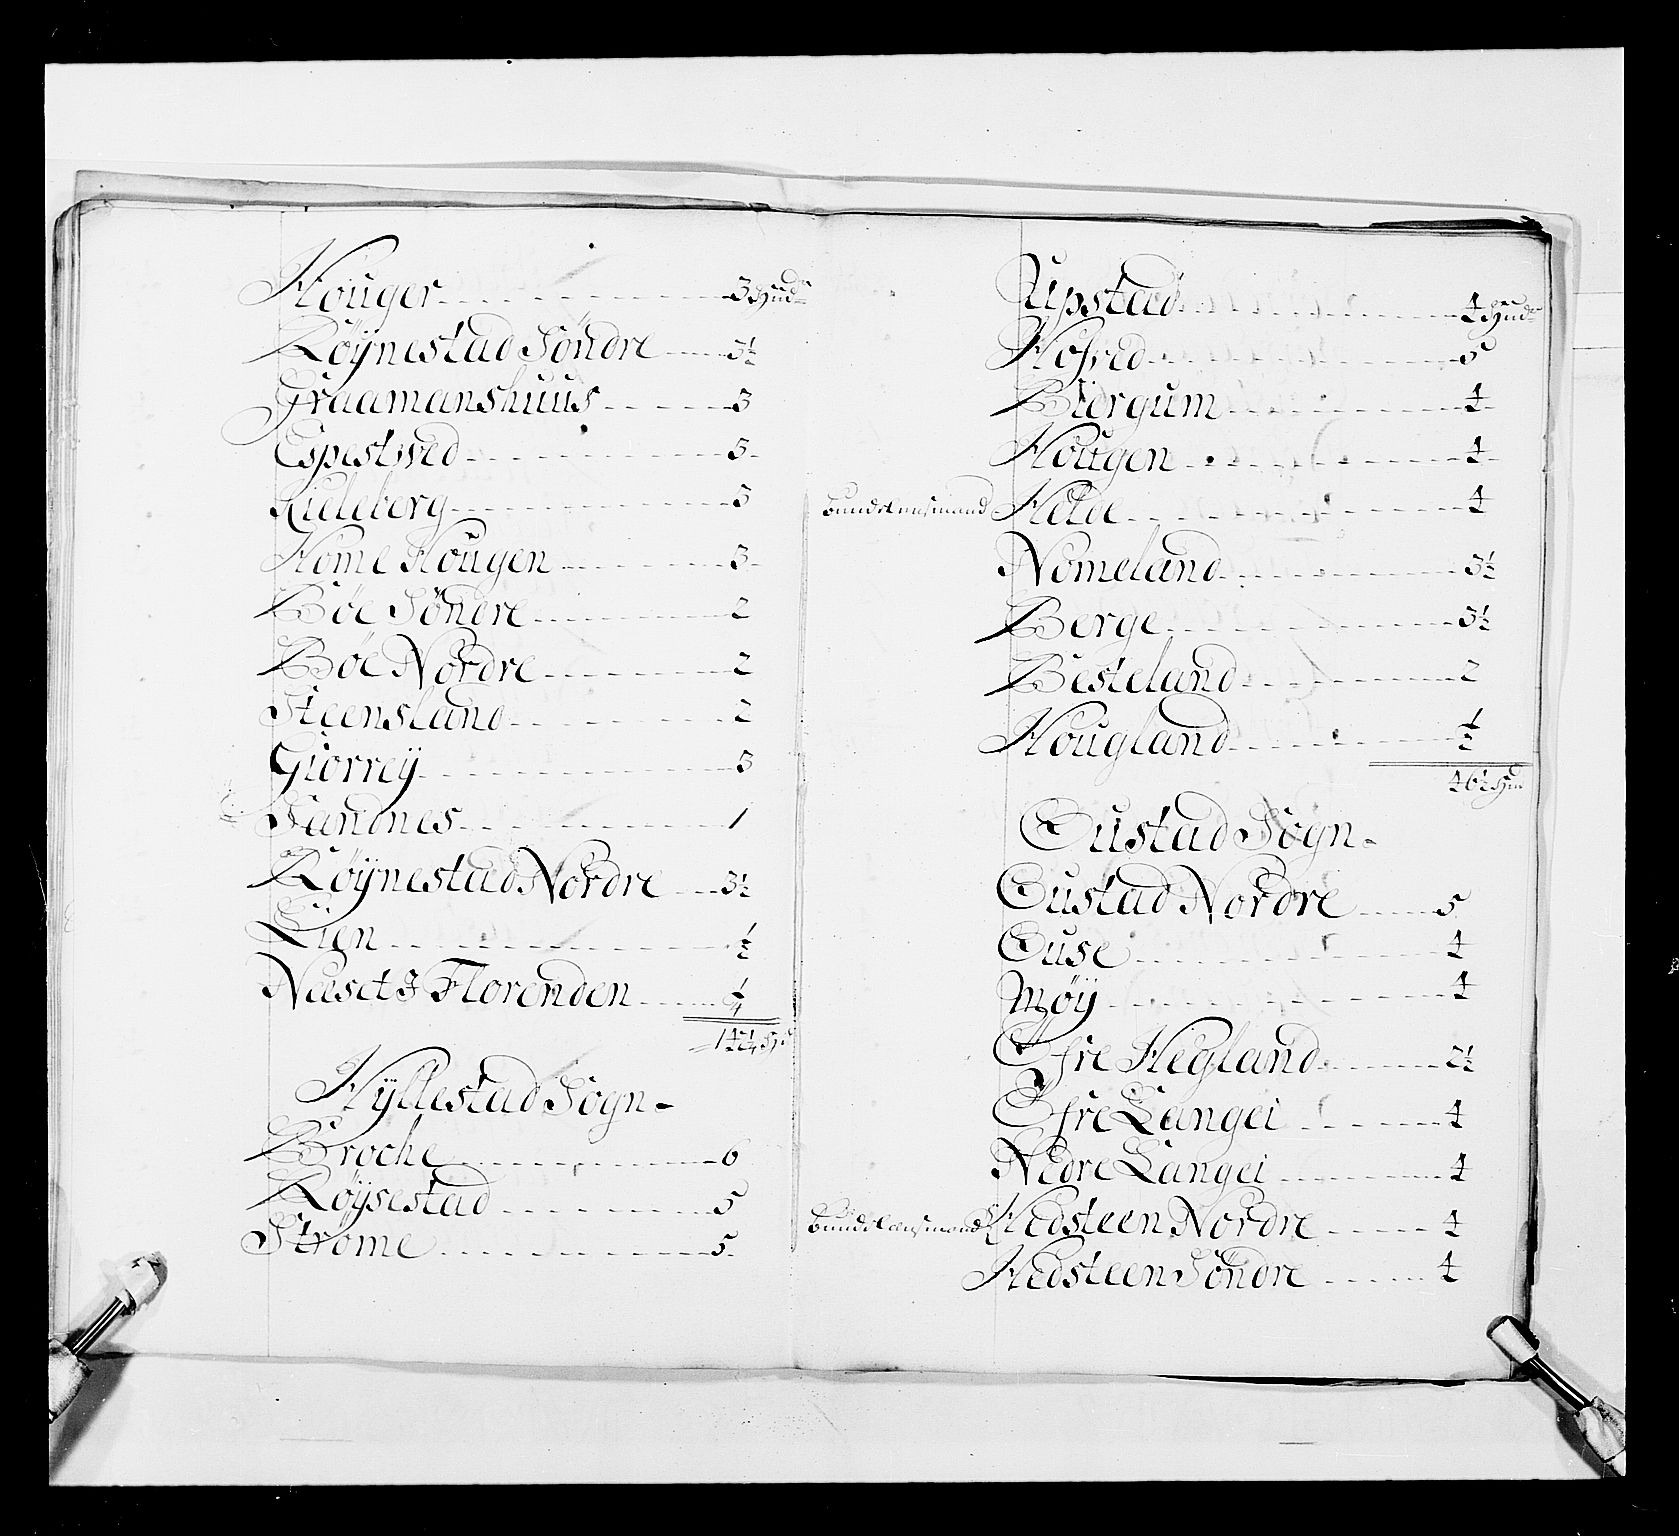 Houger 3 Hudr
Røÿnestad Søndre 3½
Graamanshuus 3
Espestved 3
Kieleberg 3
Home Hougen 3
Bøe Søndre 2
Bøe Nordre 2
Steensland 2
Giorreÿ 3
Sandnes 1
Røÿnestad Nordre 3½
Lien ½
Næset & Florenden ¼
Hÿllestad Sogn
Broche 6
Røÿsestad 5
Strøme 5
Upstad 4 Hudr
Hofved 5
Biørgum 4
Hougen 4
bundelensmand Helde 4
Nomeland 3½
Berge 3½
Besteland 2
Hougland ½
46½ Hud
Oustad Sogn
Oustad Nordre 5
Ouse 4
Møÿ 4
Øfre Hegland 2½
Øfre Langei 4
Nedre Langei 4
bundelænsmand Hedsteen Nordre 4
Hedsteen Søndre 4